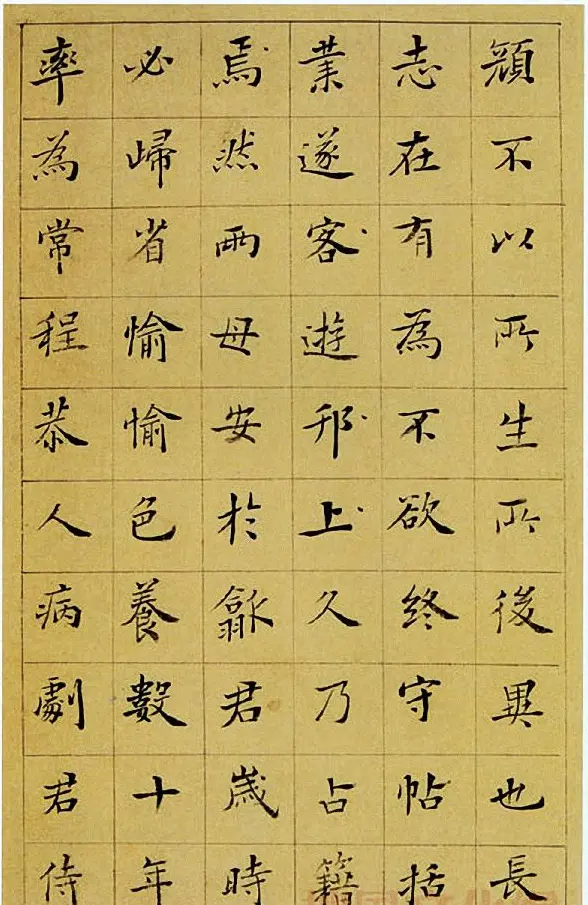 不以所生所後異也長
志在有為不欲終守帖括
業遂客遊邗上久乃占籍
焉然兩母安於歙君歲時
必歸省愉愉色養數十年
率為常程恭人病劇君侍